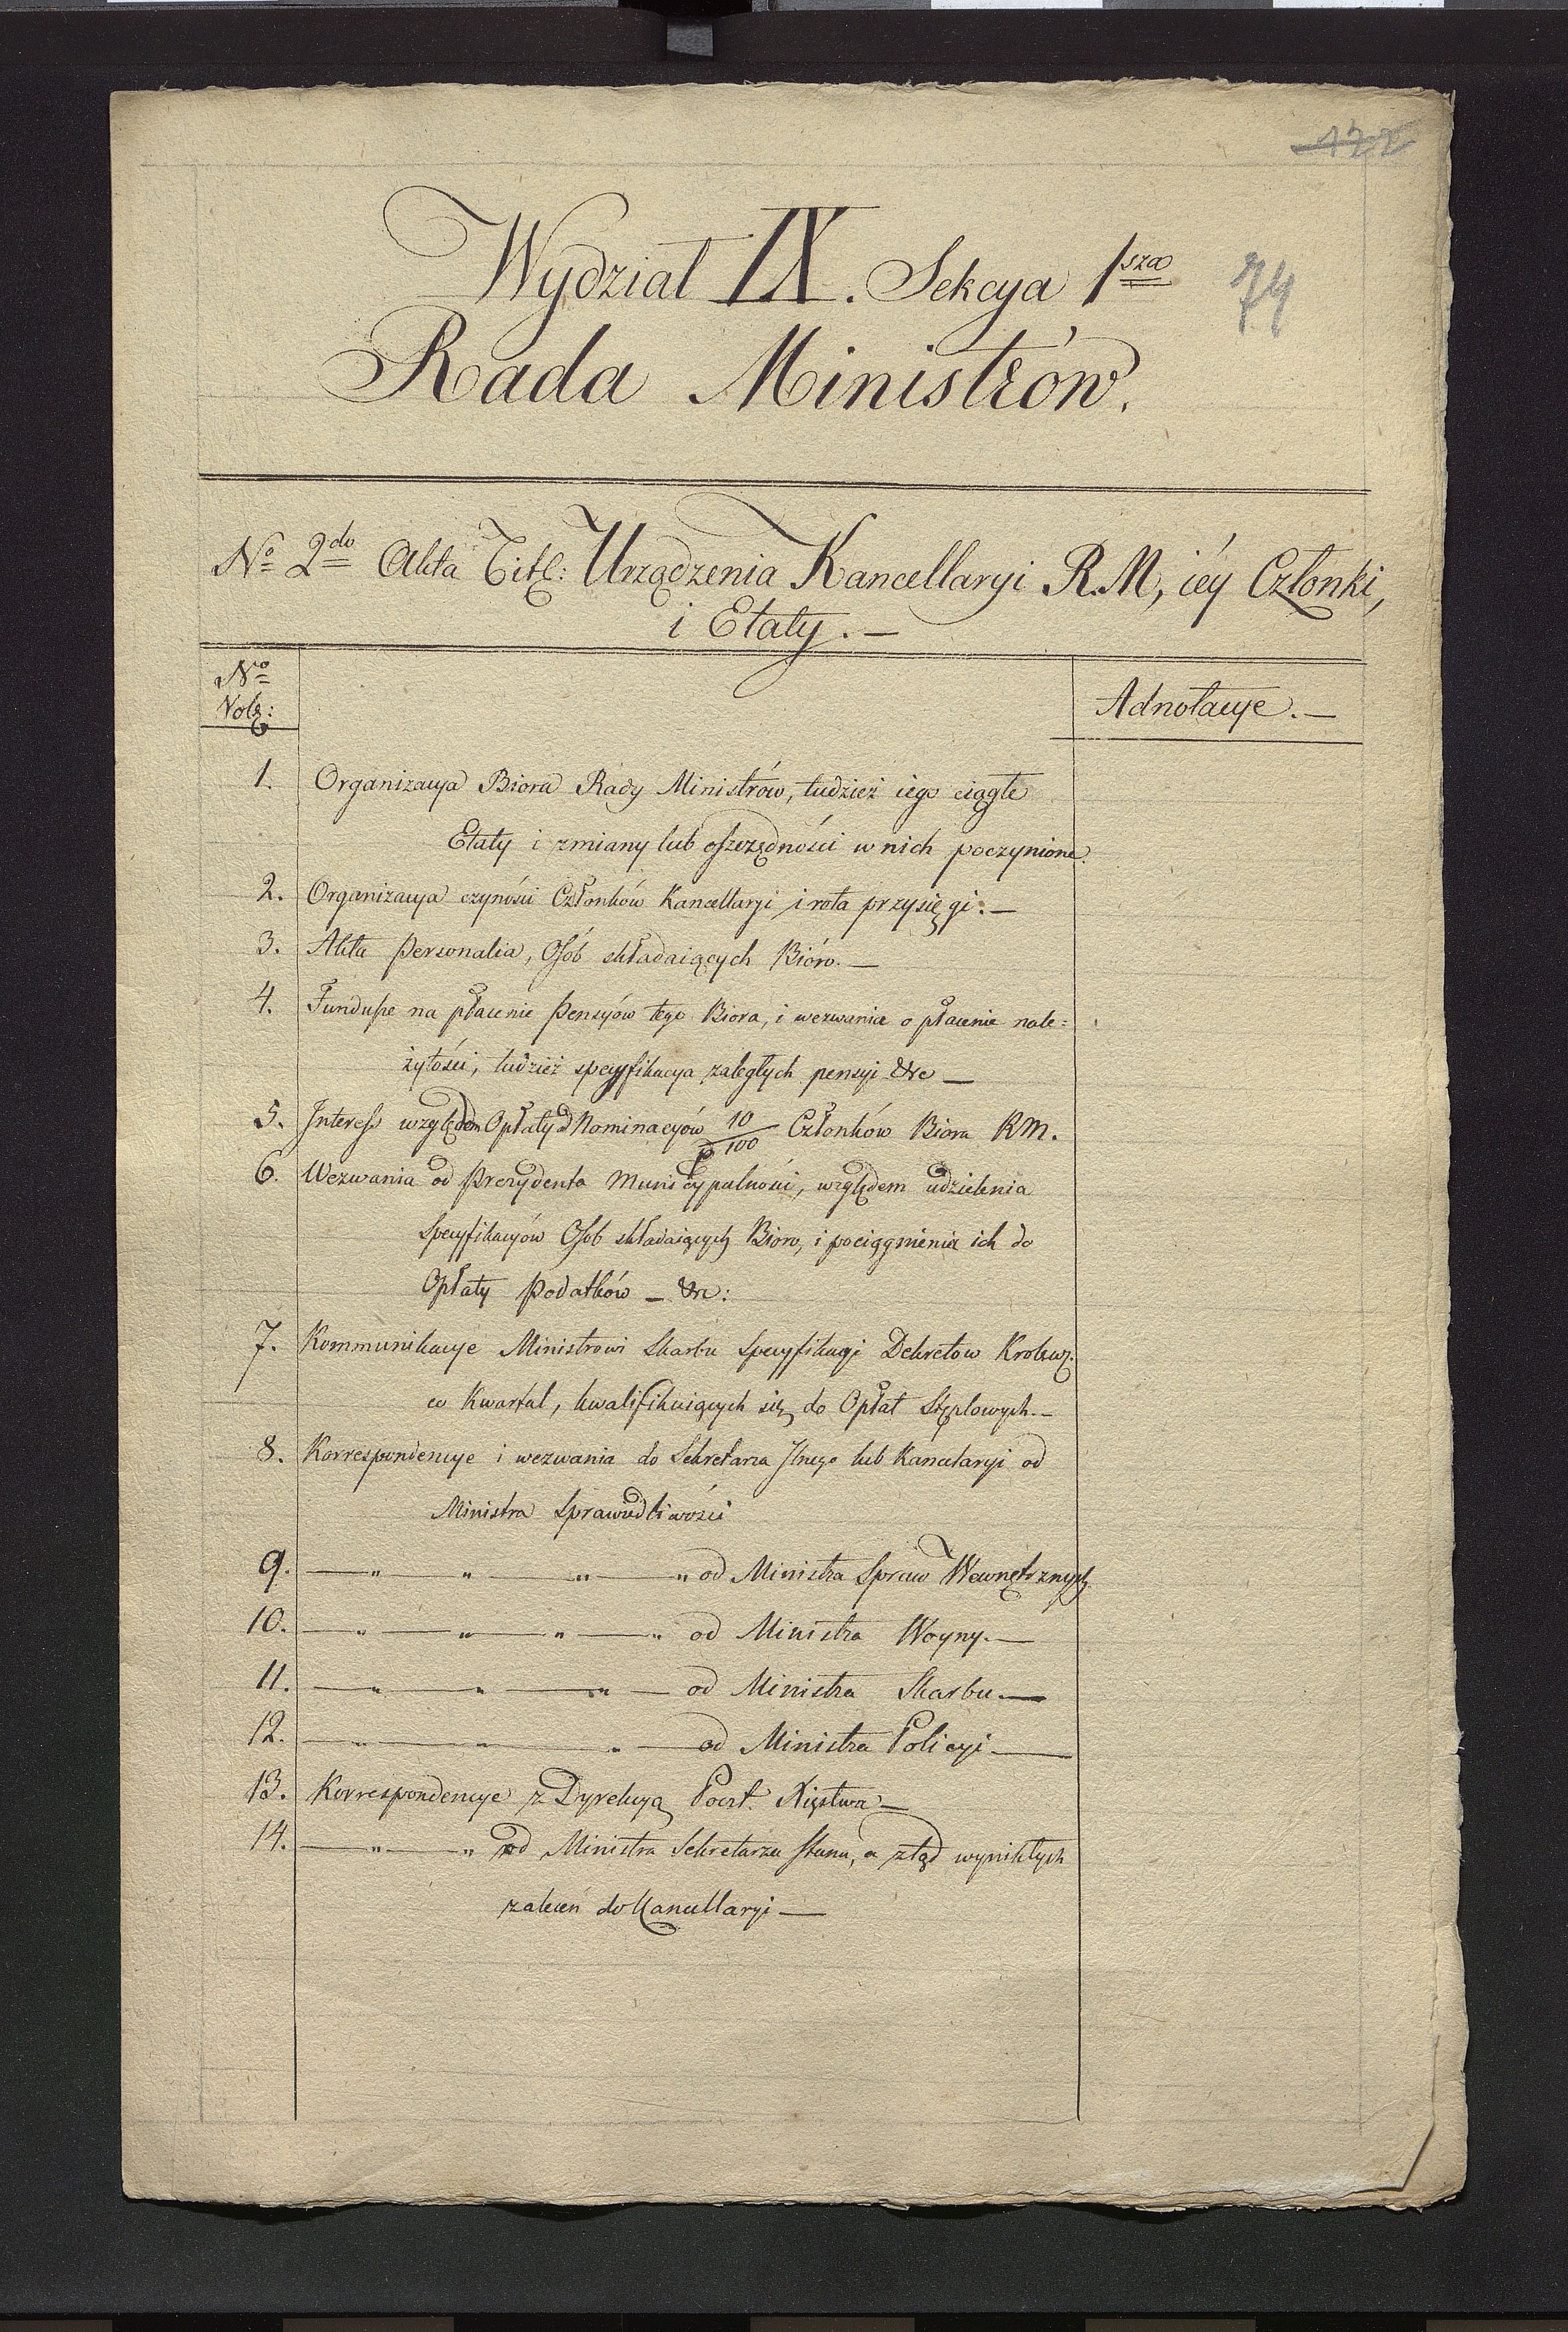 122
Wydział IX. Sekcya 1sza
74
Rada Ministrów.
No 2do Akta Titl: Urządzenia Kancellaryi R.M, iéy Członki,
i Etaty. —
No
Vol:
Adnotacye. —
1. Organizacya Biora Rady Ministrów, tudzież iego ciągłe
Etaty i zmiany lub oszczędności w nich poczynione.
2. Organizacya czyności Członków Kancellaryi i rota przysięgi. —
3. Akta Personalia, Osób składaiących Bióro. —
4. Fundusze na płacenie Pensyów tego Biora, i wezwania o płacenie nale=
żytości, tudzież specyfikacya zaległych pensyi &c —
5. Interess względem Opłaty od Nominacyów 10/100 Członków Biora RM.
6. Wezwania od Prezydenta Municypalności, względem udzielenia
specyfikacyów Osob składaiących Bioro, i pociągnienia ich do
Opłaty Podatków — &c:
7. Kommunikacye Ministrowi Skarbu specyfikacyi Dekretow Krolew.
co Kwartal, kwalifikuiących się do Opłat Stęplowych. —
8. Korrespondencye i wezwania do Sekretarza Jlnego lub Kancelaryi od
Ministra Sprawiedliwości
9. — " — " — " — " od Ministra Spraw Wewnętrznych
10. — " — " — " — " od Ministra Woyny. —
11. — " — " — " — od Ministra Skarbu. —
12. — " — " — " — od Ministra Policyi —
13. Korrespondencye z Dyrekcyą Poczt. Xięstwa —
14. — " — " od Ministra Sekretarza Stanu, a ztąd wynikłych
zaleceń do Kancellaryi —